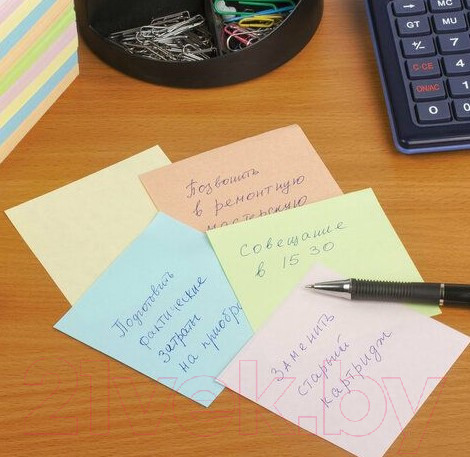 MC
MU
GT
+/-
7
C·CE
4
ON/AC
1
0
Позвонить
в ремонтную
мастерскую
Совещание
в 15 30
Подготовить
фактические
затраты
на приобр
Заменить
старый
картридж
21vek.by